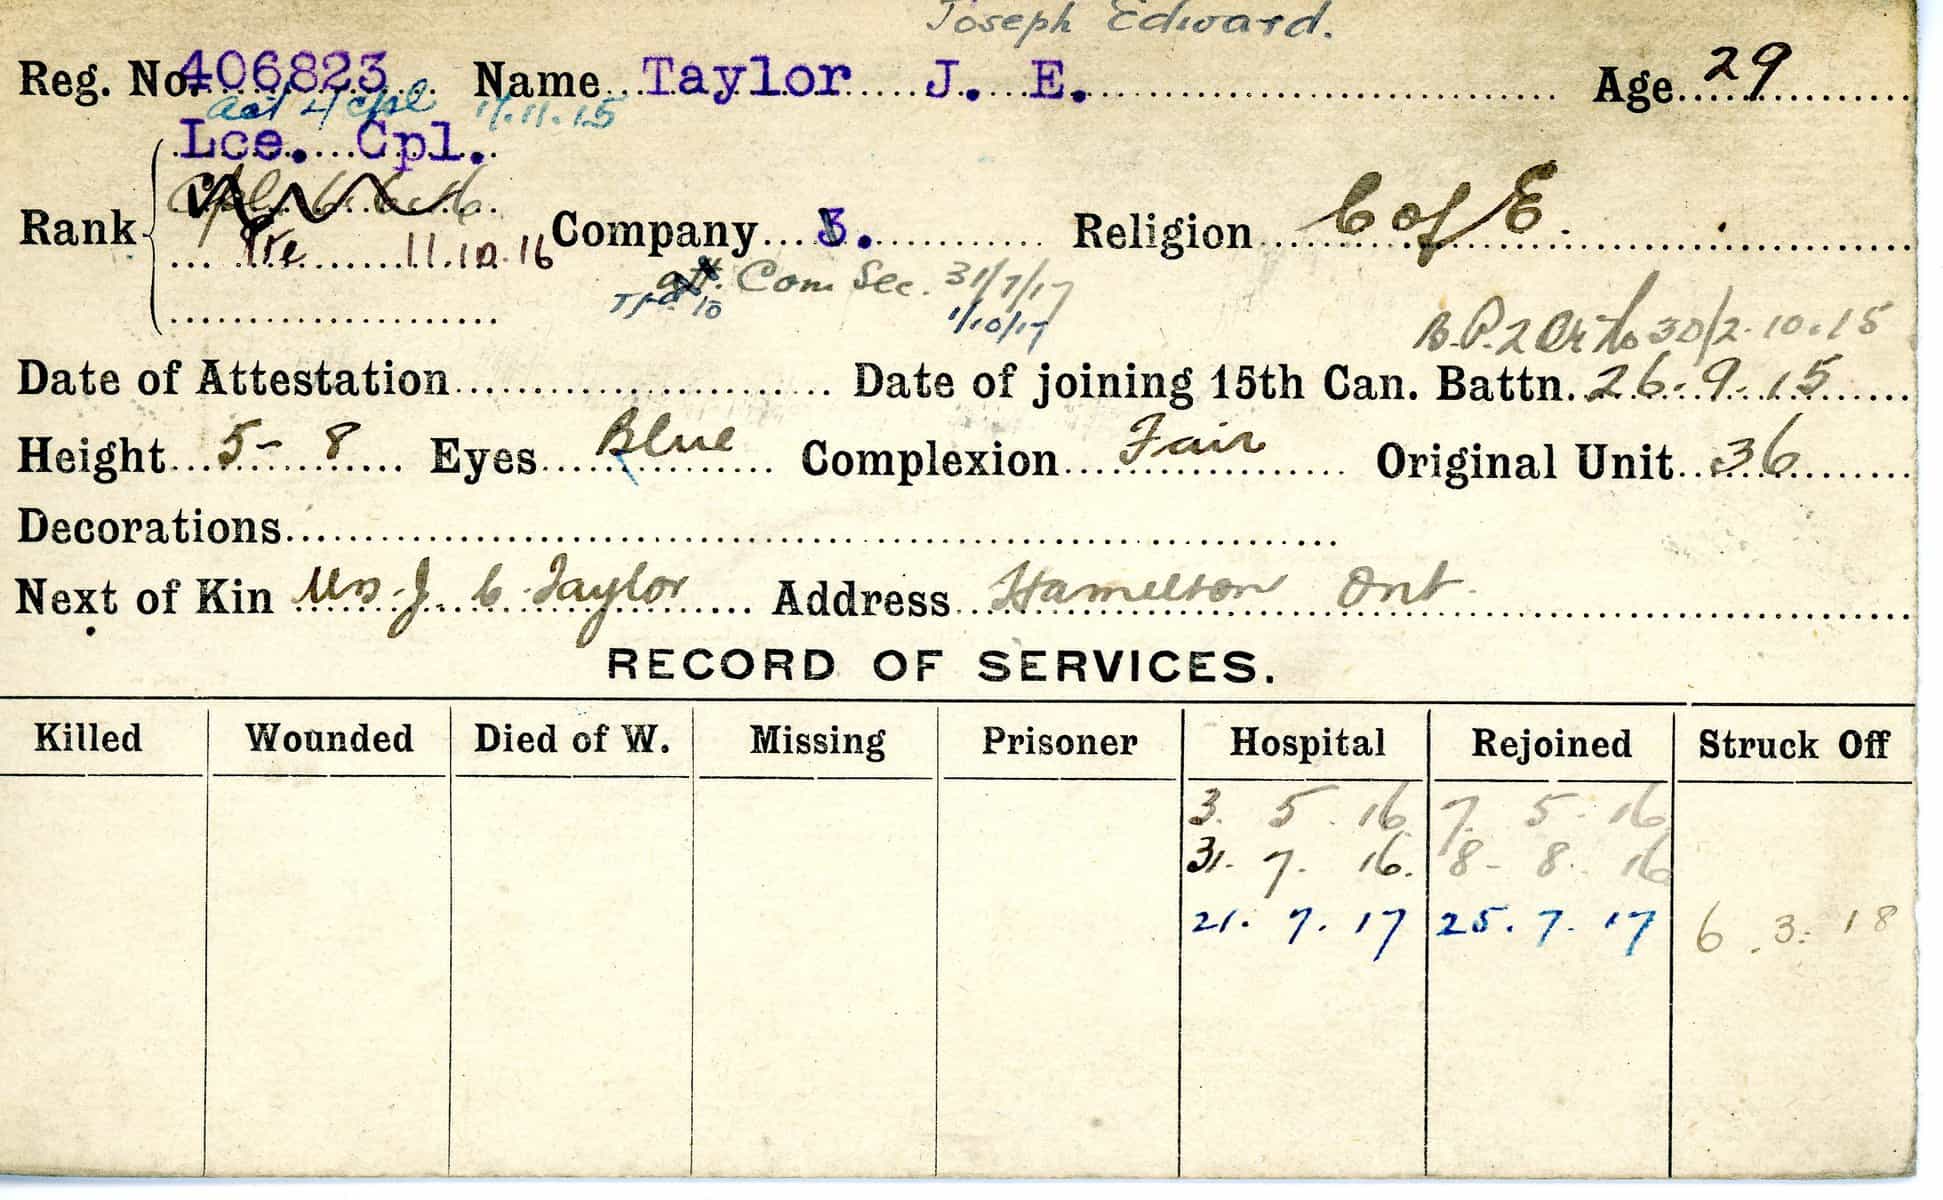 Joseph Edward.
Reg. No. 406823 Name Taylor J. E. Age 29
Act L/Cpl 11.11.15
Lce. Cpl.
Cpl 6.6.16
Rank Company 3. Religion C of E.
Pte 11.10.16
att. Com Sec. 31/7/17
1/10/17
B.P. 2 Or No 30/2.10.15
Date of Attestation Date of joining 15th Can. Battn. 26.9.15
Height 5-8 Eyes Blue Complexion Fair Original Unit 36
Decorations
Next of Kin Mrs. J. C. Taylor Address Hamelton Ont.
RECORD OF SERVICES.
Killed Wounded Died of W. Missing Prisoner Hospital Rejoined Struck Off
3. 5. 16 7. 5. 16
31. 7. 16. 8- 8. 16
21. 7. 17 25. 7. 17 6. 3. 18